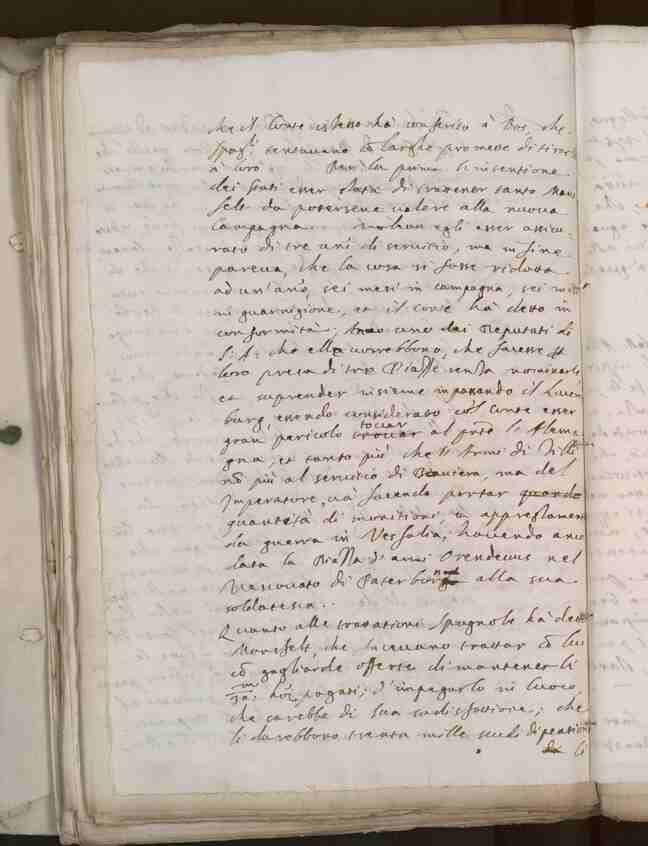 che il Conte istesso hà conferito à Bos, che
Spag.li tentavano cõ larghe promesse di tirar
à loro. la prima l'intentione
dei Stati esser stata di trattener tanto Mans
felt da potersene valere alla nuova
Campagna. egli esser assicu
rato di tre anni di servitio, ma in fine
pareva, che la cosa si fosse ridotta
ad un' anno, sei mesi in campagna, sei
in guarnigione, et il Conte hà detto in
conformità, uno dei Deputati di
S: A: che vorrebbono, che facesse
loro presa di trè Piasse senza nominarle
et suprender insieme il Luxem
burg, essendo considerato col Conte esser
gran pericolo toccar trovar al pnte le Alema
gna, et tanto più che le Armi di Tilli
nõ più al servitio di Baviera, ma del
Imperatore, và facendo portar quando
quantità di munitioni, et apprestamenti
da guerra in Vesfalia, havendo
la Piassa d'armi nel
Vescovato di Paterborn alla sua
soldatesca.
Quanto alle trattationi Spagnole hà detto
Mansfelt, che facevano trattar cõ lui
cõ gagliarde offerte di mantenerli
pagati; d'impegnarlo in luoco
che sarebbe di sua sadisfattione; che
li darebbono trenta mille scudi di pensione
li